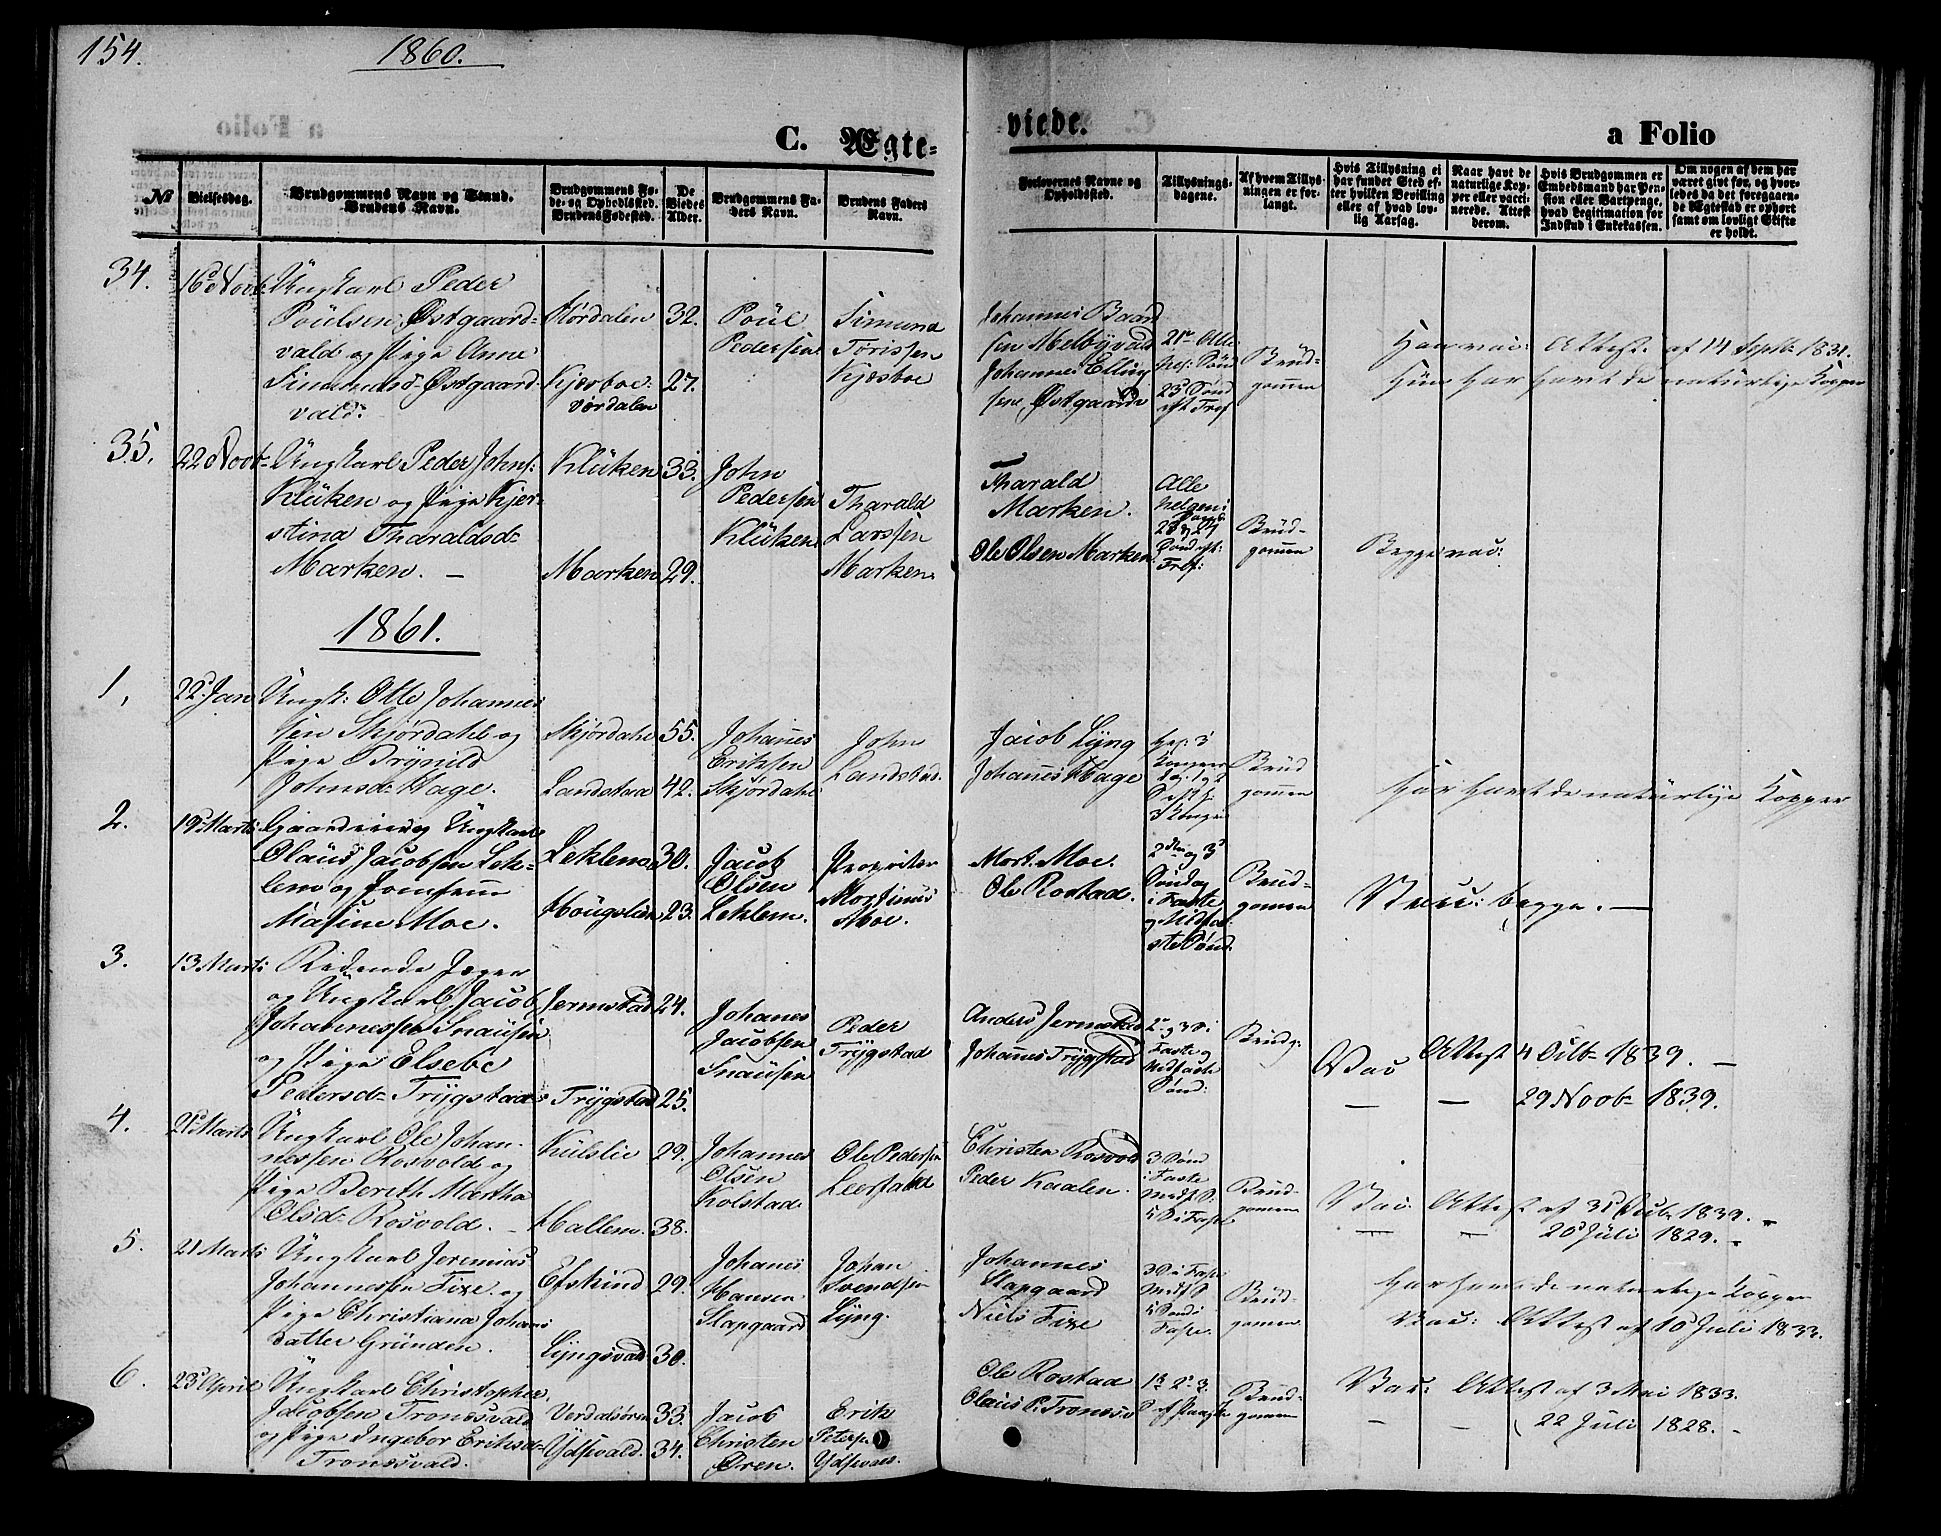 154.
1860.
C. Ægte-
viede.
a Folio
№
Vielsesdag.
Brudgommens Navn og Stand.
Brudens Navn.
Brudgommens Fø-
de- og Opholdssted.
Brudens Fødested.
De
Viedes
Alder.
Brudgommens Fa-
ders Navn.
Brudens Faders
Navn.
Forlovernes Navne og
Opholdssted.
Tillysnings-
dagene.
Af hvem Tillys-
ningen er for-
langt.
Hvis Tillysning ei
har fundet Sted ef-
ter hvilken Bevilling
eller af hvad lov-
lig Aarsag.
Naar havt de
naturlige Kop-
per eller vacci-
nerede. Attest
derom.
Hvis Brudgommen er
Embedsmand har Pen-
sion eller Vartpenge,
hvad Legitimation for
Indskud i Enkekassen.
Om nogen af dem har
været givt før, og hvor-
ledes da det foregaaen-
de Ægteskab er ophørt
samt om lovligt Skifte
er holdt.
34.
16 Novb:
Ungkarl Peder
Poulsen Østgaard-
vald og Pige Anne
Simundsd: Østgaard-
vald.
Stördalen
Kjæsboe
Værdalen
32.
27.
Poul
Pedersen
Simund
Torissen
Kjæsboe
Johannes Baard
sen Melbyvald
Johannes Elling
sen Østgaard
21de Alle
Hel: Sønd
23d Sønd
eft Tref
Brud-
gommen
Han vac: Attest af 14 Septb 1831.
Hun har havt de naturlige Kopper
35.
22 Novb-
Ungkarl Peder Johns:
Klüken og Pige Kjer-
stina Tharaldsd-
Marken. -
Klüken
Marken
33.
29.
John
Pedersen
Klüken
Tharald
Larssen
Marken
Tharald
Marken.
Ole Olsen Marken
Alle
Helgens
23 & 24
Sønd eft:
Tref:
Brud-
gommen
Begge vac:
1861.
1,
22 Jan
Ungk: Otte Johannes
sen Skjørdahl og
Pige Brynild
Johnsd: Hage.
Skjørdahl
Landstad
55.
42.
Johannes
Eriksen
Skjørdahl
John
Landstad.
Jacob Lyng
Johannes Hage
Brud
gommen
Har havt de naturlige Kopper
2.
19 Marts
Gaardeier og Ungkarl
Olaus Jacobsen Lek-
lem og Jomfrue
Masine Moe.
Leklem
Hougslien
30.
23.
Jacob
Olsen
Leklem.
Proprieter
Mortinus
Moe.
Mort. Moe.
Ole Rostad.
2den og 3d
Søndag
i Faste
og Midfa-
ste Sønd.
Brud-
gommen
Vac: begge. —
3.
13 Marts
Ridende Jæger
og Ungkarl Jacob
Johannessen Snausen
og Pige Elsebe
Pedersd- Trygstad
Jermstad
Trygstad
24.
25.
Johanes
Jacobsen
Snausen
Peder
Trygstad
Anders Jermstad
Johannes Trygstad
2 og 3 S i
Faste og
Midfaste
Sønd:
Brudg:
Vac Attest 4 Octb- 1839. —
— — 29 Novb- 1839.
4.
21 Marts
Ungkarl Ole Johan-
nessen Rosvold og
Pige Bereth Martha
Olsd- Rosvold. -
Kulslie
Hallem.
29.
38.
Johannes
Olsen
Kolstad
Ole Pedersen
Leerfald
Christen Rosvold
Peder Kaalen.
3 Sønd
i Faste
Midf S.
5 S i Faste
Brud-
gommen
Vac: Attest af 31 Octb- 1839. -
— — 20 Juli 1829. -
5.
21 Marts
Ungkarl Jeremias
Johannessen Tixe og
Pige Christiana Johans
datter Grunden.
Efskind
Lyngsvald
29.
30.
Johanes
Hansen
Slapgaard
Johan
Svendsen
Lyng.
Johannes
Slapgaard
Niels Tixe
3 S i Faste
Midf S
5 Sønd i
Faste.
Brud-
gommen
Har havt de naturlige Kopper
Vac: Attest af 10 Juli 1833.
6.
23 April
Ungkarl Christopher
Jacobsen Tronesvald
og Pige Ingebor Eriksd-
Tronesvald.
Verdalsøren
Ydsevald.
33.
34.
Jacob
Christen
Øren.
Erik
Petersen
Ydsevald.
Ole Rostad
Olaus P. Tronesv
1s 2s 3
S ef Paaske
Brud-
gommen
Vac: Attest af 3 Mai 1833.
— — 22 Juli 1828. -